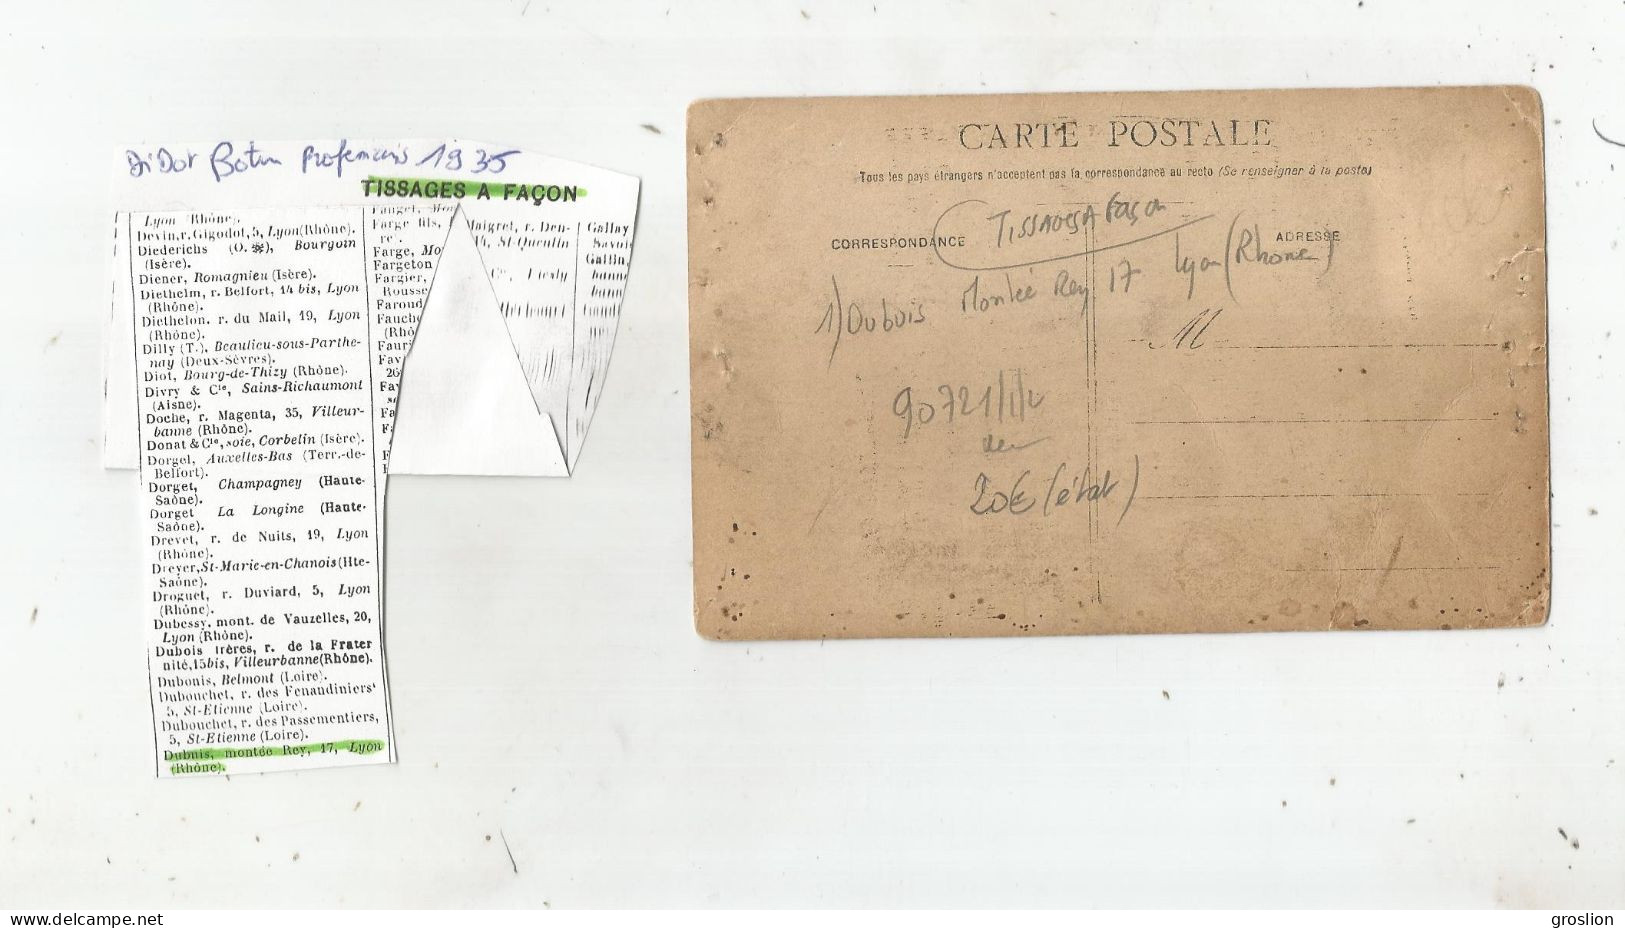 Didot Botin Professions 1935
TISSAGES A FAÇON
Lyon (Rhône).
Devin, r. Gigodot, 5, Lyon (Rhône).
Diederichs (O. ❋), Bourgoin
(Isère).
Diener, Romagnieu (Isère).
Diethelm, r. Belfort, 14 bis, Lyon
(Rhône).
Diethelon, r. du Mail, 19, Lyon
(Rhône).
Dilly (T.), Beaulieu-sous-Parthe-
nay (Deux-Sèvres).
Diot, Bourg-de-Thizy (Rhône).
Divry & Cie, Sains-Richaumont
(Aisne).
Doche, r. Magenta, 35, Villeur-
banne (Rhône).
Donat & Cie, soie, Corbelin (Isère).
Dorgel, Auxelles-Bas (Terr.-de-
Belfort).
Dorget, Champagney (Haute-
Saône).
Dorget La Longine (Haute-
Saône).
Drevet, r. de Nuits, 19, Lyon
(Rhône).
Dreyer, St-Marie-en-Chanois (Hte-
Saône).
Droguet, r. Duviard, 5, Lyon
(Rhône).
Dubessy, mont. de Vauzelles, 20,
Lyon (Rhône).
Dubois frères, r. de la Frater
nité, 15bis, Villeurbanne (Rhône).
Dubouis, Belmont (Loire).
Dubouchet, r. des Fenaudiniers'
5, St-Etienne (Loire).
Dubouchet, r. des Passementiers,
5, St-Etienne (Loire).
Dubuis, montée Rey, 17, Lyon
(Rhône).
Farge fils,
Farge, Mo
Fargeton
Fargier,
Rousse
Faroud
Fauche
(Rhô
Fauri
Fav
26
Maigret, r. Den-
14, St-Quentin
Gallay
Savoie
Gallin,
banne
CARTE POSTALE
Tous les pays étrangers n'acceptent pas la correspondance au recto (Se renseigner à la poste)
CORRESPONDANCE
ADRESSE
TISSAGES A Façon
1) Dubuis Montée Rey 17 Lyon (Rhône)
M
90721/1/2
20€ (état)
groslion